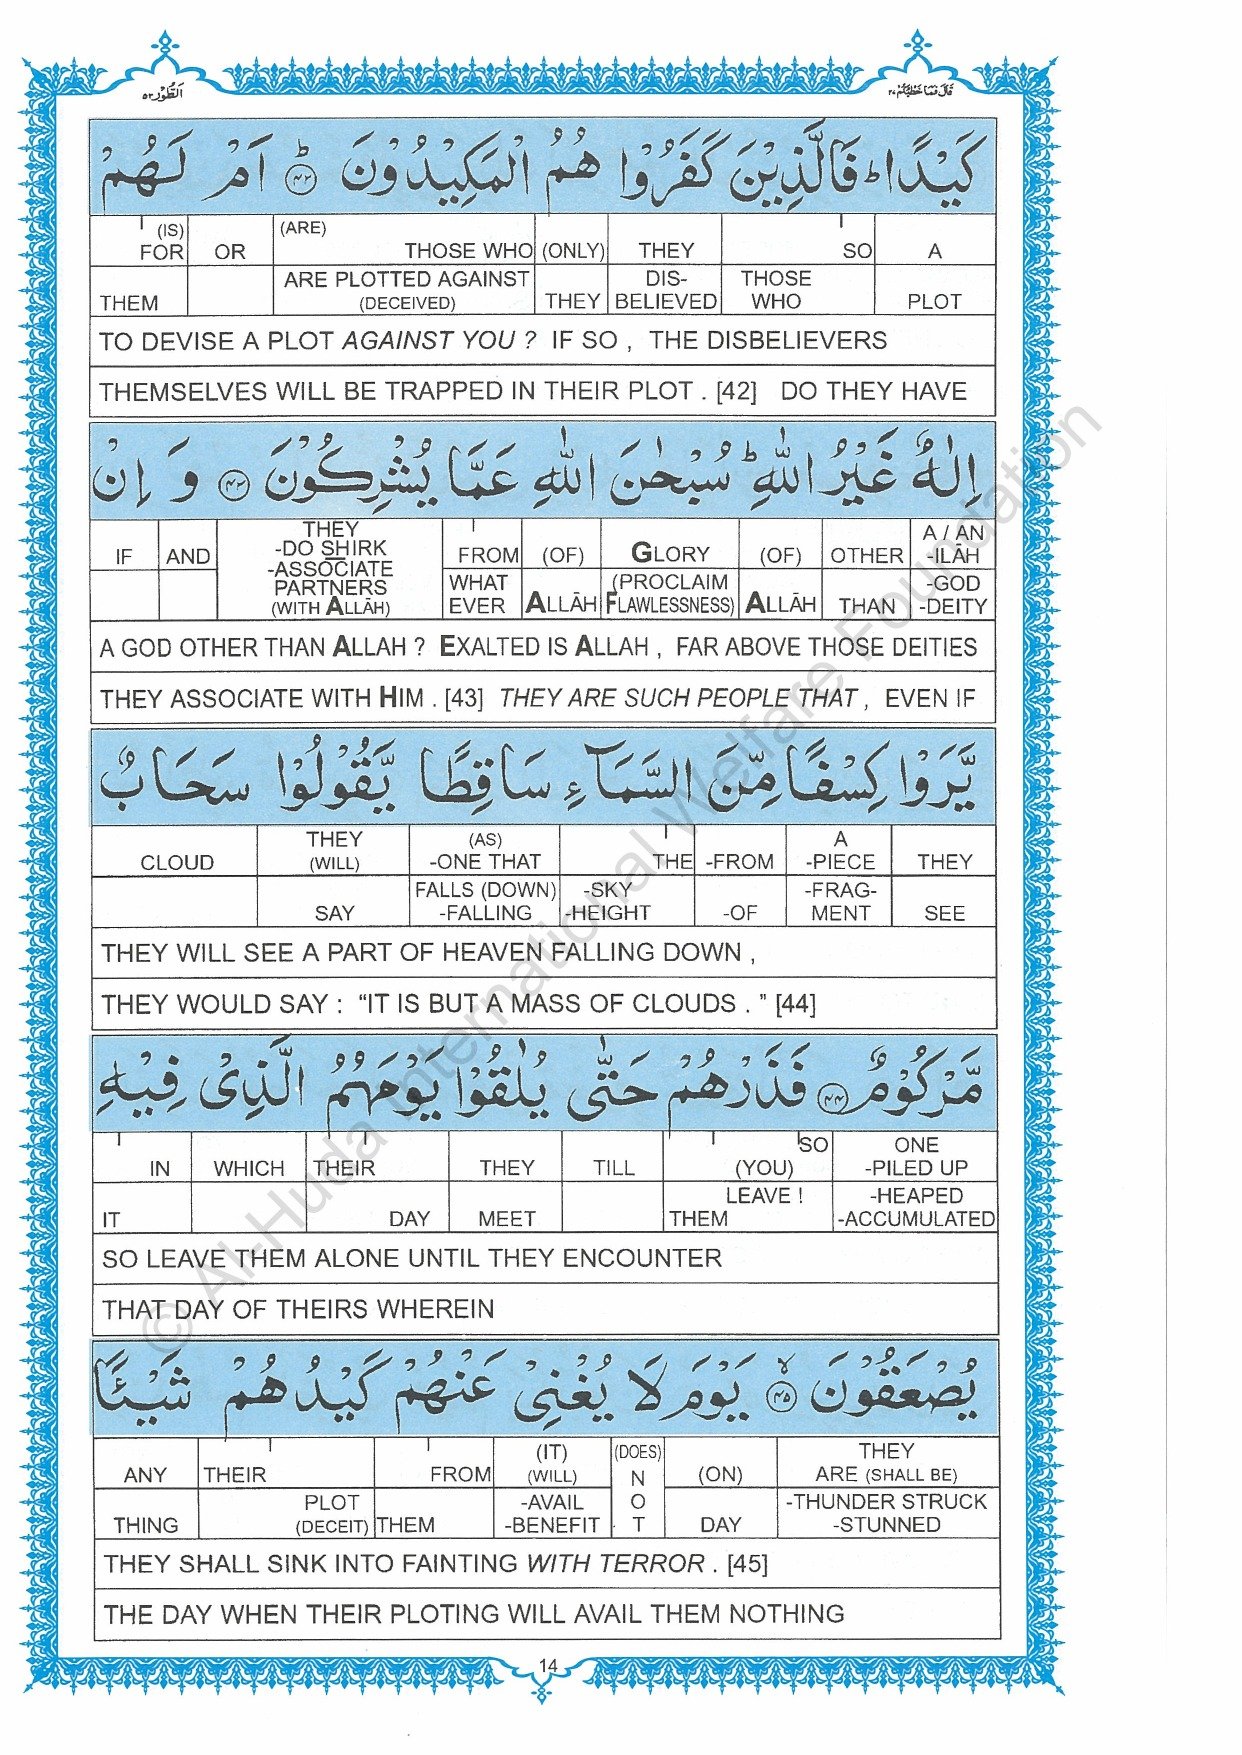 الطُّوْر ٥٢
قَالَ فَمَا خَطْبُكُمْ ٢٧
كَيْدًا ؕ فَالَّذِيْنَ كَفَرُوْا هُمُ الْمَكِيْدُوْنَ ؕ ﴿٤٢﴾ اَمْ لَهُمْ
(IS) (ARE)
FOR OR THOSE WHO (ONLY) THEY SO A
ARE PLOTTED AGAINST DIS- THOSE
THEM (DECEIVED) THEY BELIEVED WHO PLOT
TO DEVISE A PLOT AGAINST YOU ? IF SO , THE DISBELIEVERS
THEMSELVES WILL BE TRAPPED IN THEIR PLOT . [42] DO THEY HAVE
اِلٰهٌ غَيْرُ اللّٰهِ ؕ سُبْحٰنَ اللّٰهِ عَمَّا يُشْرِكُوْنَ ﴿٤٣﴾ وَ اِنْ
THEY A / AN
IF AND -DO SHIRK FROM (OF) GLORY (OF) OTHER -ILĀH
-ASSOCIATE
PARTNERS WHAT (PROCLAIM -GOD
(WITH ALLĀH) EVER ALLĀH FLAWLESSNESS) ALLĀH THAN -DEITY
A GOD OTHER THAN ALLAH ? EXALTED IS ALLAH , FAR ABOVE THOSE DEITIES
THEY ASSOCIATE WITH HIM . [43] THEY ARE SUCH PEOPLE THAT , EVEN IF
يَّرَوْا كِسْفًا مِّنَ السَّمَآءِ سَاقِطًا يَّقُوْلُوْا سَحَابٌ
THEY (AS) A
CLOUD (WILL) -ONE THAT THE -FROM -PIECE THEY
FALLS (DOWN) -SKY -FRAG-
SAY -FALLING -HEIGHT -OF MENT SEE
THEY WILL SEE A PART OF HEAVEN FALLING DOWN ,
THEY WOULD SAY : “IT IS BUT A MASS OF CLOUDS . ” [44]
مَّرْكُوْمٌ ﴿٤٤﴾ فَذَرْهُمْ حَتّٰى يُلٰقُوْا يَوْمَهُمُ الَّذِىْ فِيْهِ
SO ONE
IN WHICH THEIR THEY TILL (YOU) -PILED UP
LEAVE ! -HEAPED
IT DAY MEET THEM -ACCUMULATED
SO LEAVE THEM ALONE UNTIL THEY ENCOUNTER
THAT DAY OF THEIRS WHEREIN
يُصْعَقُوْنَ ۙ ﴿٤٥﴾ يَوْمَ لَا يُغْنِىْ عَنْهُمْ كَيْدُهُمْ شَيْـًٔا
(IT) (DOES) THEY
ANY THEIR FROM (WILL) N (ON) ARE (SHALL BE)
PLOT -AVAIL O -THUNDER STRUCK
THING (DECEIT) THEM -BENEFIT T DAY -STUNNED
THEY SHALL SINK INTO FAINTING WITH TERROR . [45]
THE DAY WHEN THEIR PLOTING WILL AVAIL THEM NOTHING
14
© Al-Huda International Welfare Foundation